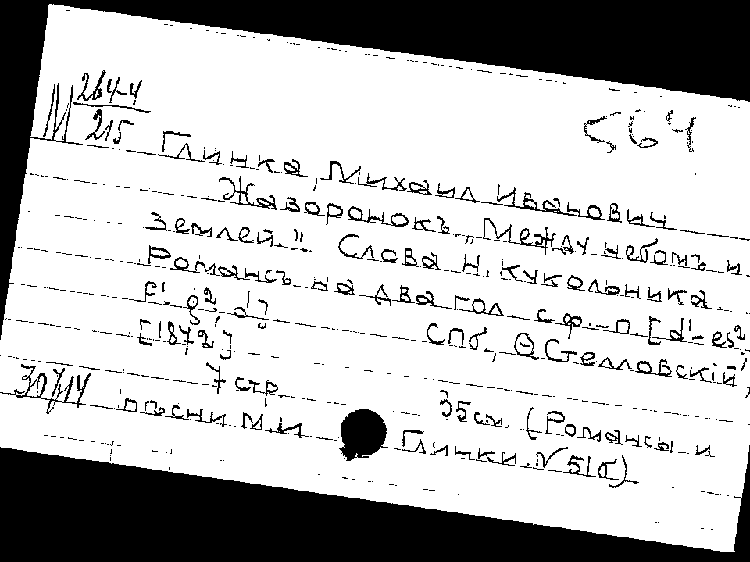 М 264-4
215
564
Глинка, Михаил Иванович
Жаворонокъ „Между небомъ и
землей". Слова Н. Кукольника
Романсъ на два гол. с ф.-п [d'-es²,
g², d']
СПб, Ѳ. Стелловскій,
[1872]
7 стр. 35 см. (Романсы и
пѣсни М.И Глинки. № 51б)